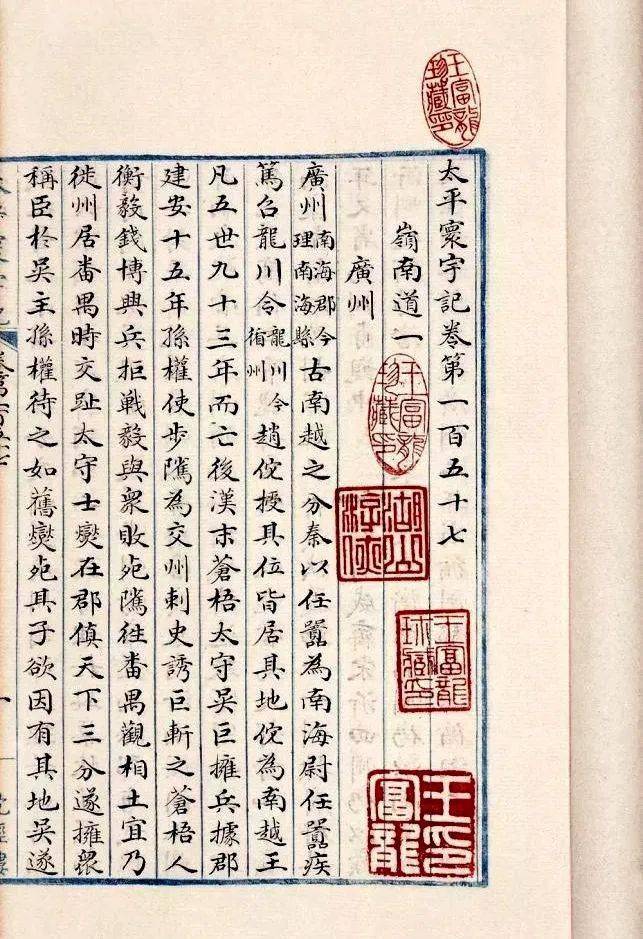 太平寰宇記卷第一百五十七
嶺南道一
廣州
廣州南海郡今理南海縣古南越之分秦以任囂為南海尉任囂疾
篤召龍川令龍川今循州趙佗授其位皆居其地佗為南越王
凡五世九十三年而亡後漢末蒼梧太守吳巨擁兵據郡
建安十五年孫權使步隲為交州刺史誘巨斬之蒼梧人
衡毅錢博興兵拒戰毅與衆敗死隲徃番禺觀相土宜乃
徙州居番禺時交趾太守士燮在郡值天下三分遂擁衆
稱臣於吳主孫權待之如舊燮死其子欲因有其地吳遂
王富龍珍藏印
王富龍珍藏印
王富龍珍藏印
王富龍印